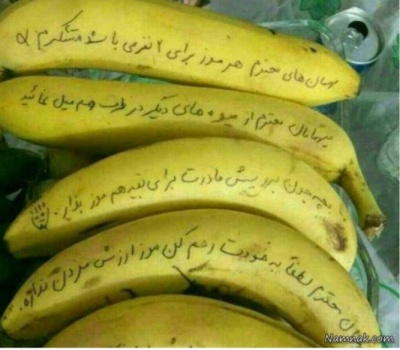 مهمان های محترم هر موز برای ۲ نفر می باشد متشکرم
مهمانان محترم از میوه های دیگر در ظرف هم میل نمائید
بچه جون برو پیش مادرت برای بقیه هم موز بذار
محترم لطفاً به خودت رحم کن موز ارزش مردن نداره
Namnak.com